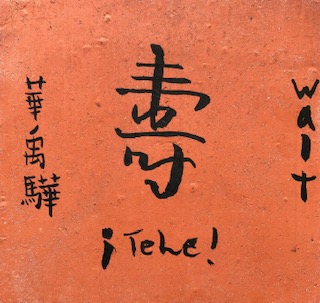 華禹驊
壽
¡Tehe!
Walt